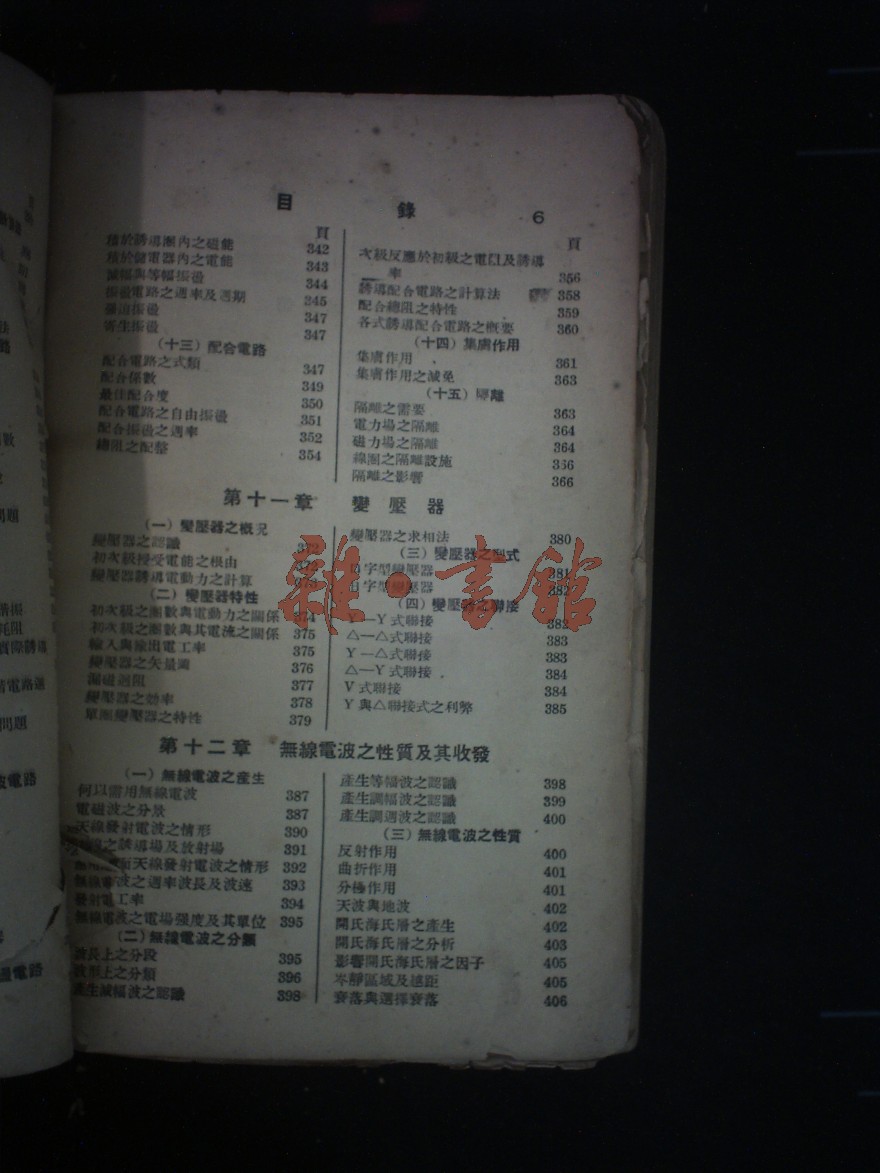 目錄 6
頁
積於誘導圈內之磁能 342
積於儲電器內之電能 343
減幅與等幅振盪 344
振盪電路之週率及週期 345
強迫振盪 347
寄生振盪 347
(十三) 配合電路
配合電路之式類 347
配合係數 349
最佳配合度 350
配合電路之自由振盪 351
配合振盪之週率 352
總阻之配整 354
頁
次級反應於初級之電阻及誘導
率 356
誘導配合電路之計算法 358
配合總阻之特性 359
各式誘導配合電路之概要 360
(十四) 集膚作用
集膚作用 361
集膚作用之減免 363
(十五) 隔離
隔離之需要 363
電力場之隔離 364
磁力場之隔離 364
線圈之隔離設施 366
隔離之影響 366
第十一章 變壓器
(一) 變壓器之概況
變壓器之認識 372
初次級授受電能之根由 372
變壓器誘導電動力之計算 373
(二) 變壓器特性
初次級之圈數與電動力之關係 374
初次級之圈數與其電流之關係 375
輸入與輸出電工率 375
變壓器之矢量圖 376
漏磁迴阻 377
變壓器之効率 378
單圈變壓器之特性 379
變壓器之求相法 380
(三) 變壓器之型式
口字型變壓器 381
日字型變壓器 382
(四) 變壓器之聯接
Y—Y 式聯接 382
△—△式聯接 383
Y—△式聯接 383
△—Y 式聯接 384
V 式聯接 384
Y 與△聯接式之利弊 385
雜·書館
第十二章 無線電波之性質及其收發
(一) 無線電波之產生
何以需用無線電波 387
電磁波之分景 387
天線發射電波之情形 390
之誘導場及放射場 391
天線發射電波之情形 392
無線電波之週率波長及波速 393
發射電工率 394
無線電波之電場强度及其單位 395
(二) 無線電波之分類
波長上之分段 395
波形上之分類 396
產生減幅波之認識 398
產生等幅波之認識 398
產生調幅波之認識 399
產生調週波之認識 400
(三) 無線電波之性質
反射作用 400
曲折作用 401
分極作用 401
天波與地波 402
開氏海氏層之產生 402
開氏海氏層之分析 403
影響開氏海氏層之因子 405
岑靜區域及越距 405
衰落與選擇衰落 406